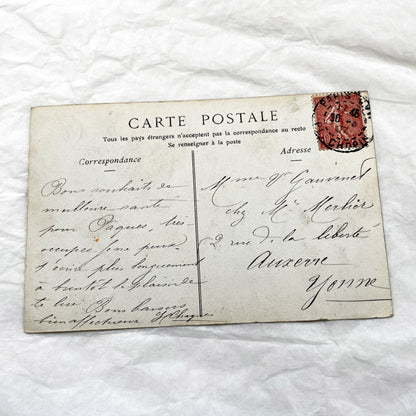 CARTE POSTALE
Tous les pays étrangers n'acceptent pas la correspondance au recto
Se renseigner à la poste
Correspondance
Adresse
Bons souhaits de
meilleure santé
pour Paques, très
occupée je ne peux
t'écrire plus longuement
à bientôt le plaisir de
te lire. Bons baisers
bien affectueux
Mme Vve Gauvenet
chez Mr Merlier
2 rue de la liberté
Auxerre
Yonne
PARIS